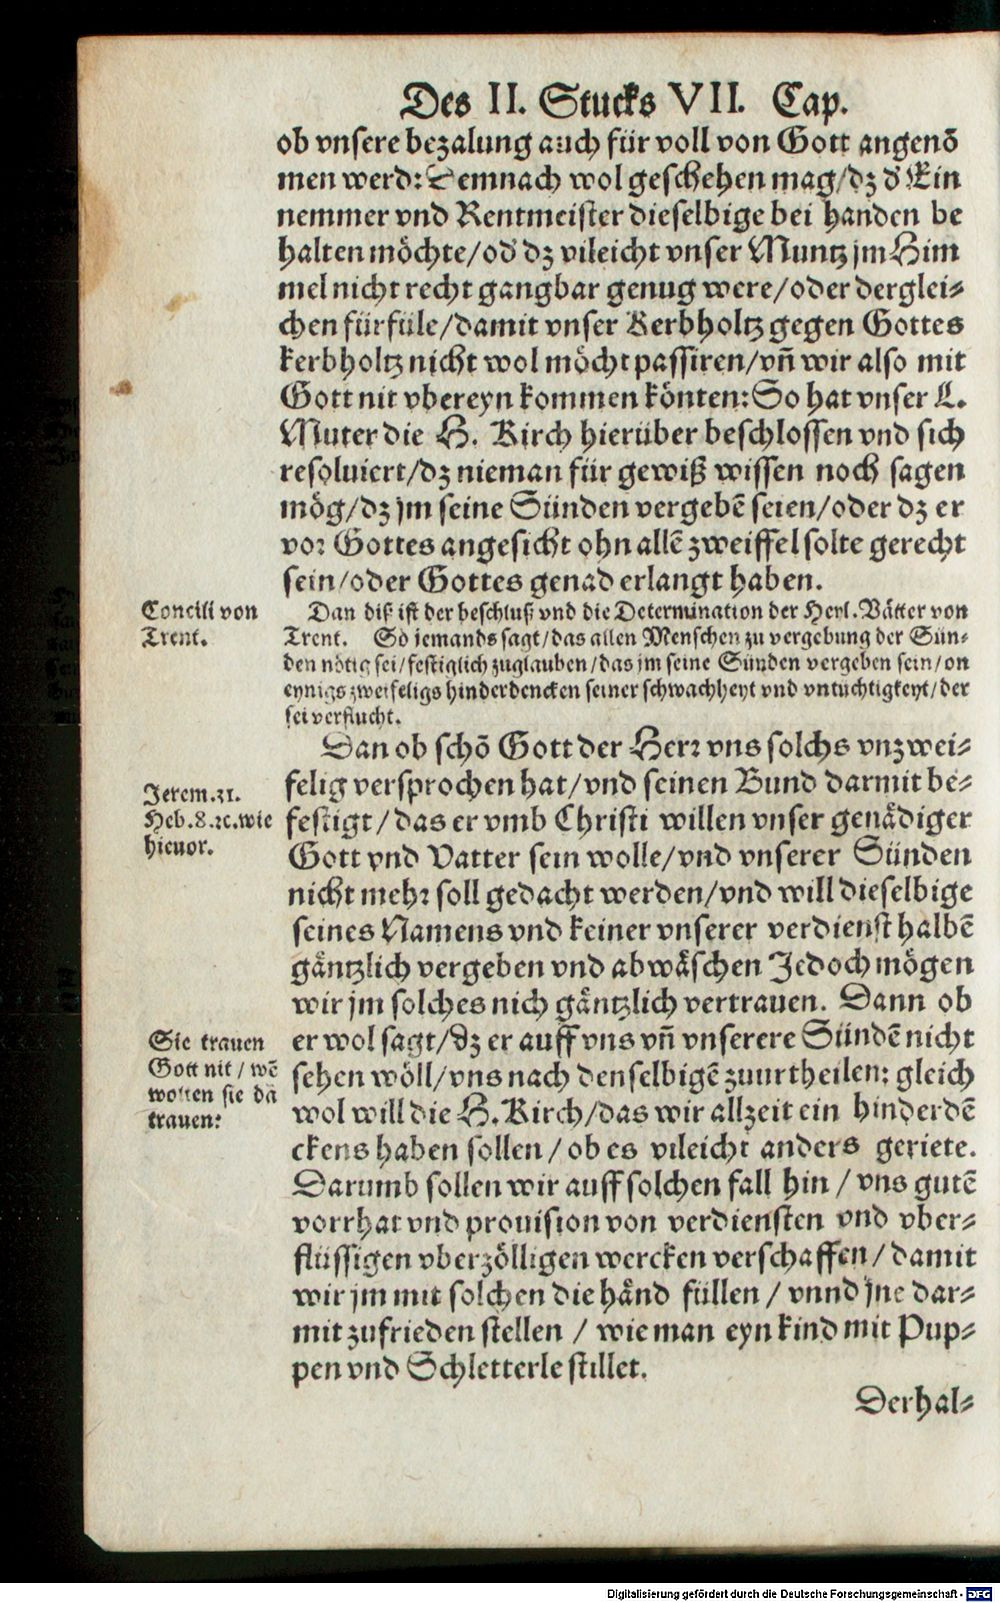 Des II. Stucks VII. Cap.
ob vnsere bezalung auch für voll von Gott angenõ
men werd: Demnach wol geschehen mag/dz d' Ein
nemmer vnd Rentmeister dieselbige bei handen be
halten möchte/od' dz vileicht vnser Muntz jm Him
mel nicht recht gangbar genug were/oder derglei⸗
chen fürfüle/damit vnser Kerbholtz gegen Gottes
kerbholtz nicht wol möcht passiren/vñ wir also mit
Gott nit vbereyn kommen könten: So hat vnser L.
Muter die H. Kirch hierüber beschlossen vnd sich
resoluiert/dz nieman für gewiß wissen noch sagen
mög/dz jm seine Sünden vergebẽ seien/oder dz er
vor Gottes angesicht ohn allẽ zweiffel solte gerecht
sein/oder Gottes genad erlangt haben.
Concili von
Trent.
Dan diß ist der beschluß vnd die Determination der Heyl. Vätter von
Trent. So jemands sagt/das allen Menschen zu vergebung der Sün⸗
den nötig sei/festiglich zuglauben/das jm seine Sünden vergeben sein/on
eynigs zweifeligs hinderdencken seiner schwachheyt vnd vntüchtigkeyt/der
sei verflucht.
Dan ob schõ Gott der Herr vns solchs vnzwei⸗
felig versprochen hat/vnd seinen Bund darmit be⸗
festigt/das er vmb Christi willen vnser genädiger
Gott vnd Vatter sein wolle/vnd vnserer Sünden
nicht mehr soll gedacht werden/vnd will dieselbige
seines Namens vnd keiner vnserer verdienst halbẽ
gäntzlich vergeben vnd abwäschen Jedoch mögen
wir jm solches nich gäntzlich vertrauen. Dann ob
er wol sagt/dz er auff vns vñ vnserere Sündẽ nicht
sehen wöll/vns nach denselbigẽ zuurtheilen: gleich
wol will die H. Kirch/das wir allzeit ein hinderdẽ
ckens haben sollen/ob es vileicht anders geriete.
Darumb sollen wir auff solchen fall hin/vns gutẽ
vorrhat vnd prouision von verdiensten vnd vber⸗
flüssigen vberzölligen wercken verschaffen/damit
wir jm mit solchen die händ füllen/vnnd jne dar⸗
mit zufrieden stellen/wie man eyn kind mit Pup⸗
pen vnd Schletterle stillet.
Jerem.31.
Heb.8.ꝛc.wie
hieuor.
Sie trauen
Gott nit/wẽ
wolten sie dã
trauen?
Derhal⸗
Digitalisierung gefördert durch die Deutsche Forschungsgemeinschaft - DFG